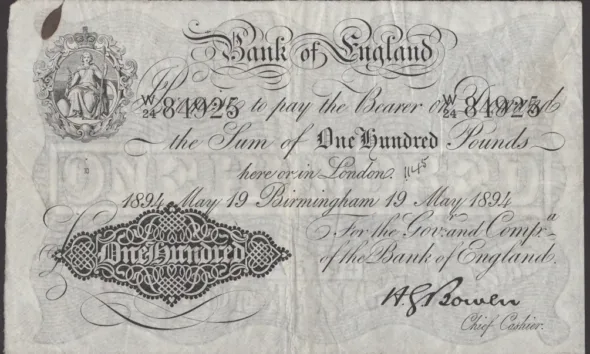 Bank of England
I Promise to pay the Bearer on Demand
W/24 84925 W/24 84925
the Sum of One Hundred Pounds
here or in London. 1145
1894 May 19 Birmingham 19 May 1894
For the Gov.r and Comp.a
of the Bank of England.
One Hundred
H G Bowen
Chief Cashier.